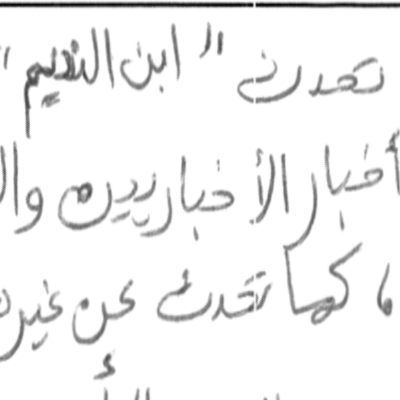 تحدث " ابن النديم "
أخبار الأخباريين وا
، كما تحدث عن غير